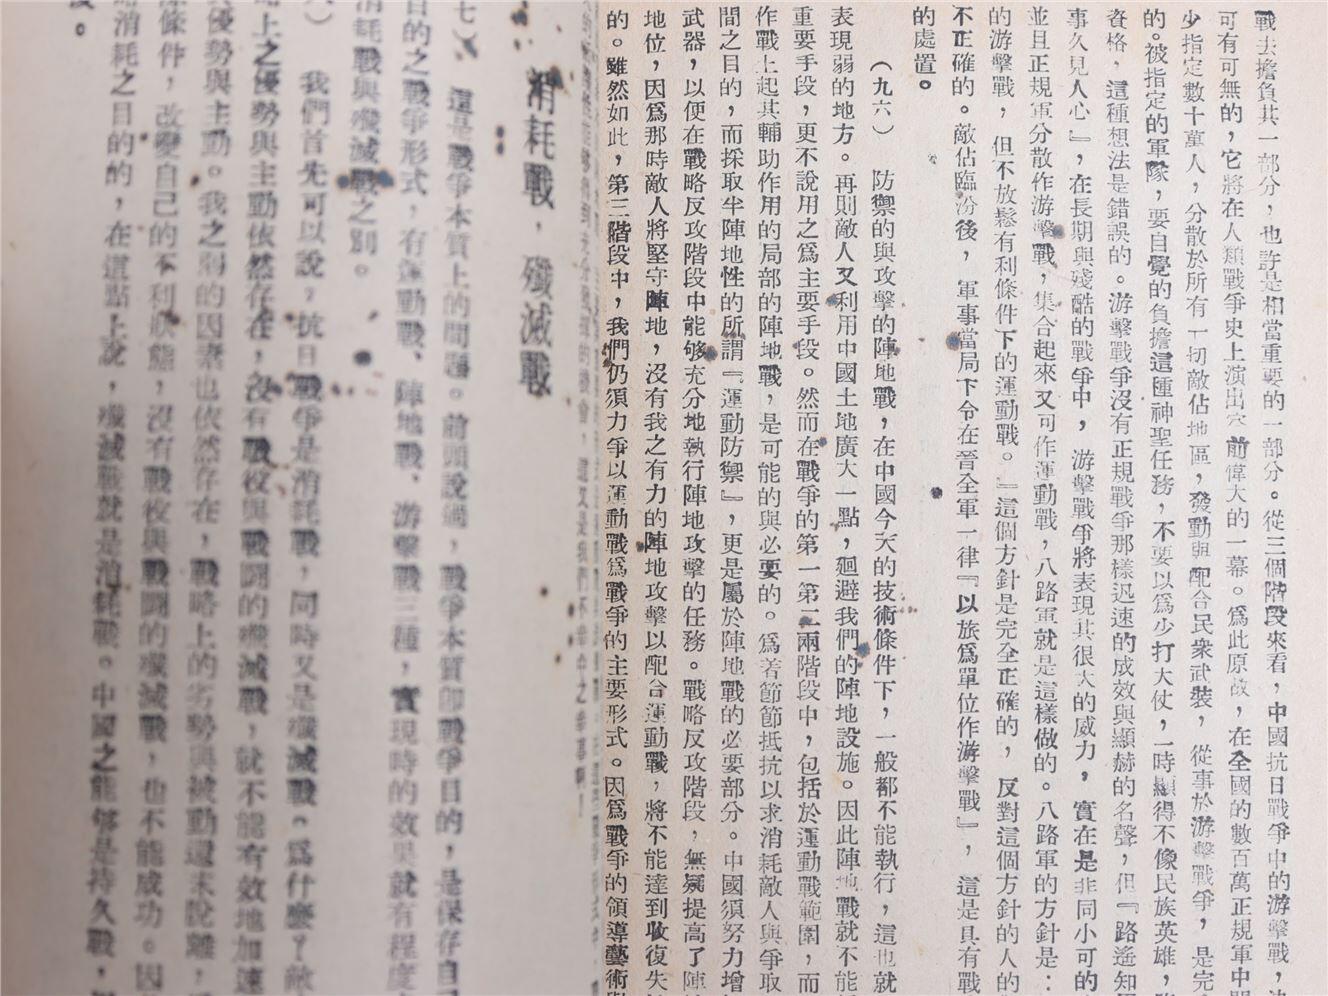 戰去擔負其一部分，也許是相當重要的一部分。從三個階段來看，中國抗日戰爭中的游擊戰，
可有可無的，它將在人類戰爭史上演出空前偉大的一幕。爲此原故，在全國的數百萬正規軍中間
少指定數十萬人，分散於所有一切敵佔地區，發動與配合民衆武裝，從事於游擊戰爭，是完
的。被指定的軍隊，要自覺的負擔這種神聖任務，不要以爲少打大仗，一時顯得不像民族英雄，
資格，這種想法是錯誤的。游擊戰爭沒有正規戰爭那樣迅速的成效與顯赫的名聲，但『路遙知
事久見人心』，在長期與殘酷的戰爭中，游擊戰爭將表現其很大的威力，實在是非同小可的
並且正規軍分散作游擊戰，集合起來又可作運動戰，八路軍就是這樣做的。八路軍的方針是：
的游擊戰，但不放鬆有利條件下的運動戰。』這個方針是完全正確的，反對這個方針的人的
不正確的。敵佔臨汾後，軍事當局下令在晉全軍一律『以旅爲單位作游擊戰』，這是具有戰
的處置。
（九六）　防禦的與攻擊的陣地戰，在中國今天的技術條件下，一般都不能執行，這也就
表現弱的地方。再則敵人又利用中國土地廣大一點，迴避我們的陣地設施。因此陣地戰就不能
重要手段，更不說用之爲主要手段。然而在戰爭的第一第二兩階段中，包括於運動戰範圍，而
作戰上起其輔助作用的局部的陣地戰，是可能的與必要的。爲着節節抵抗以求消耗敵人與爭取
間之目的，而採取半陣地性的所謂『運動防禦』，更是屬於陣地戰的必要部分。中國須努力增
武器，以便在戰略反攻階段中能够充分地執行陣地攻擊的任務。戰略反攻階段，無疑提高了陣
地位，因爲那時敵人將堅守陣地，沒有我之有力的陣地攻擊以配合運動戰，將不能達到收復失
的。雖然如此，第三階段中，我們仍須力爭以運動戰爲戰爭的主要形式。因爲戰爭的領導藝術
消耗戰，殲滅戰
七）　這是戰爭本質上的問題。前頭說過，戰爭本質即戰爭目的，是保存自己
目的之戰爭形式，有運動戰、陣地戰、游擊戰三種，實現時的效果就有程度
消耗戰與殲滅戰之別。
）　我們首先可以說，抗日戰爭是消耗戰，同時又是殲滅戰。爲什麼？敵
略上之優勢與主動依然存在，沒有戰役與戰鬪的殲滅戰，就不能有效地加速
優勢與主動。我之弱的因素也依然存在，戰略上的劣勢與被動還未脫離，
條件，改變自己的不利狀態，沒有戰役與戰鬪的殲滅戰，也不能成功。因
略消耗之目的的，在這點上說，殲滅戰就是消耗戰。中國之能够是持久戰，
。